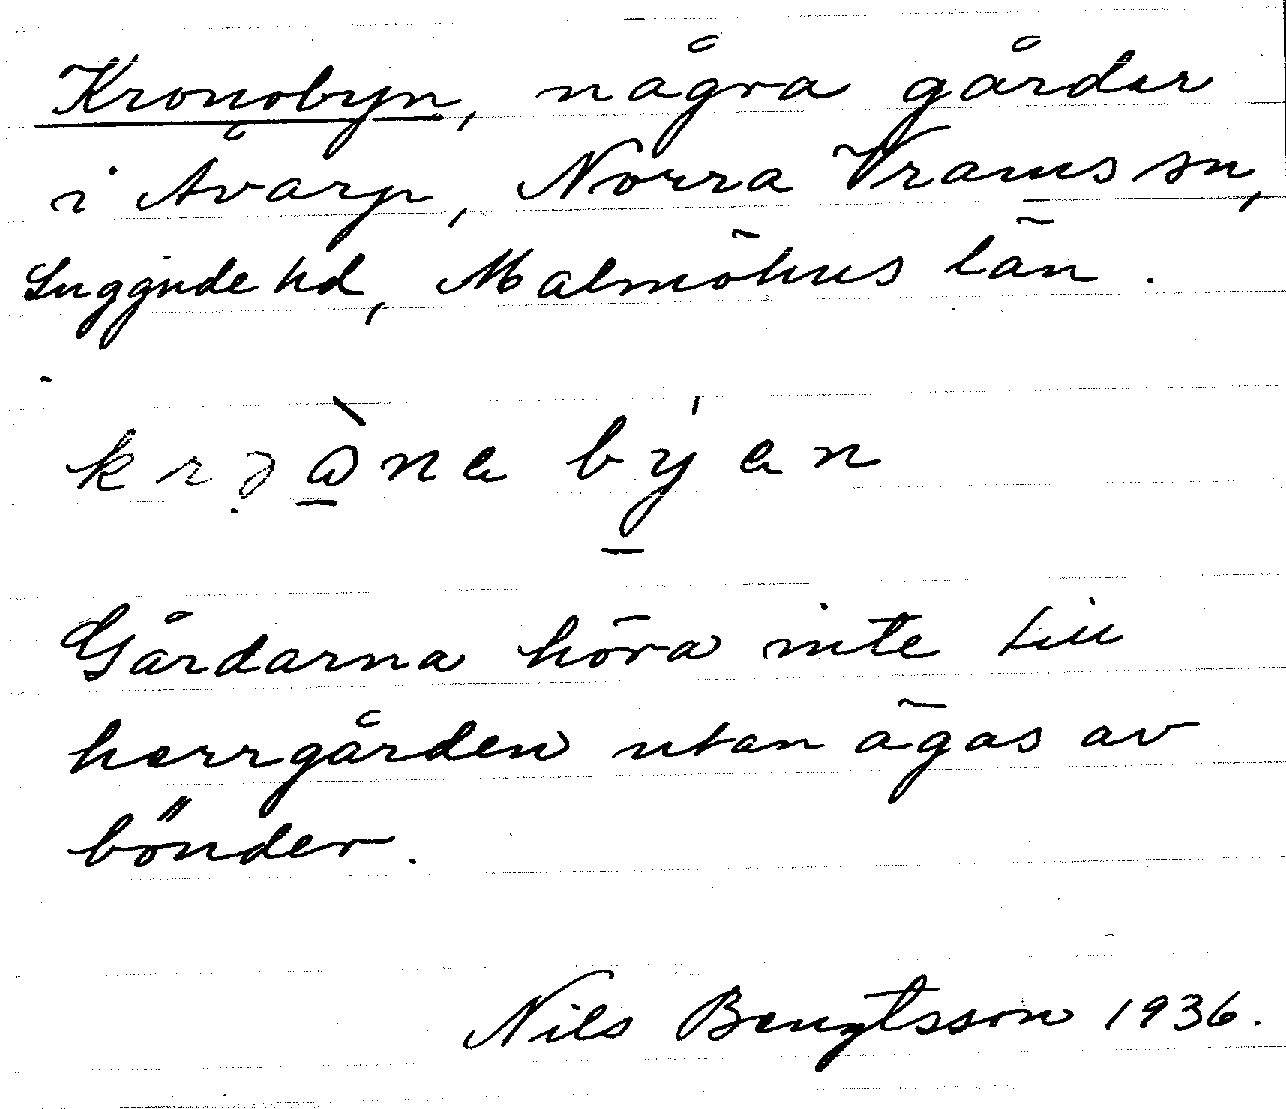 Kronobyn, några gårdar
i Åvarp, Norra Vrams sn,
Luggude hd, Malmöhus län.
Gårdarna höra inte till
herrgården utan ägas av
bönder.
Nils Bengtsson 1936.